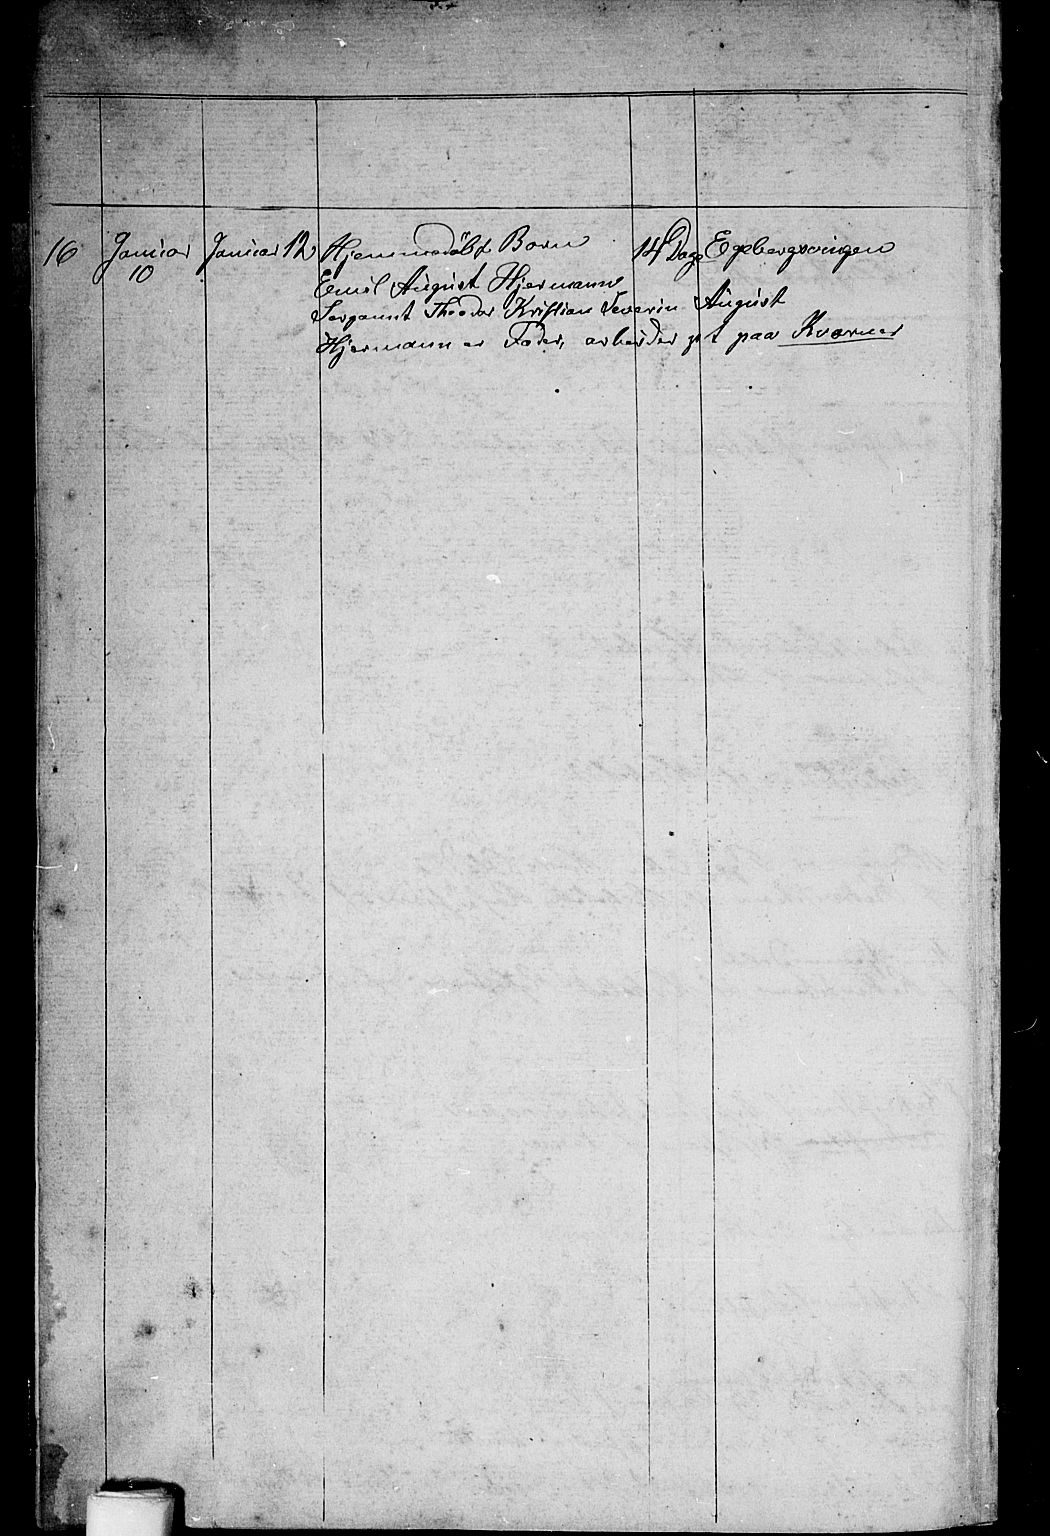 16 Januar Januar 12 Hjemmedöbt Barn 14 Dage Egebergsveien
10
Emil August Hjermann
Sergeant Theodor Kristian Severin August
Hjermann er Fader, arbeider pt paa Kværner